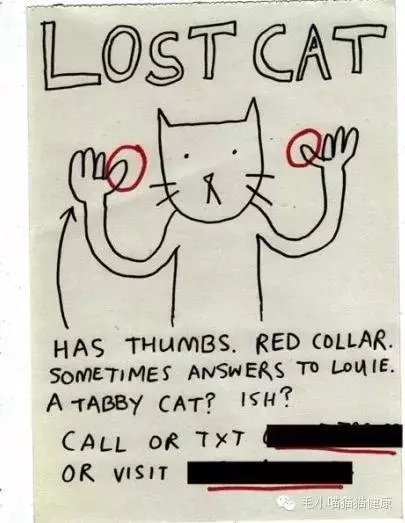 LOST CAT
HAS THUMBS. RED COLLAR.
SOMETIMES ANSWERS TO LOUIE.
A TABBY CAT? ISH?
CALL OR TXT
OR VISIT
毛小喵猫猫健康